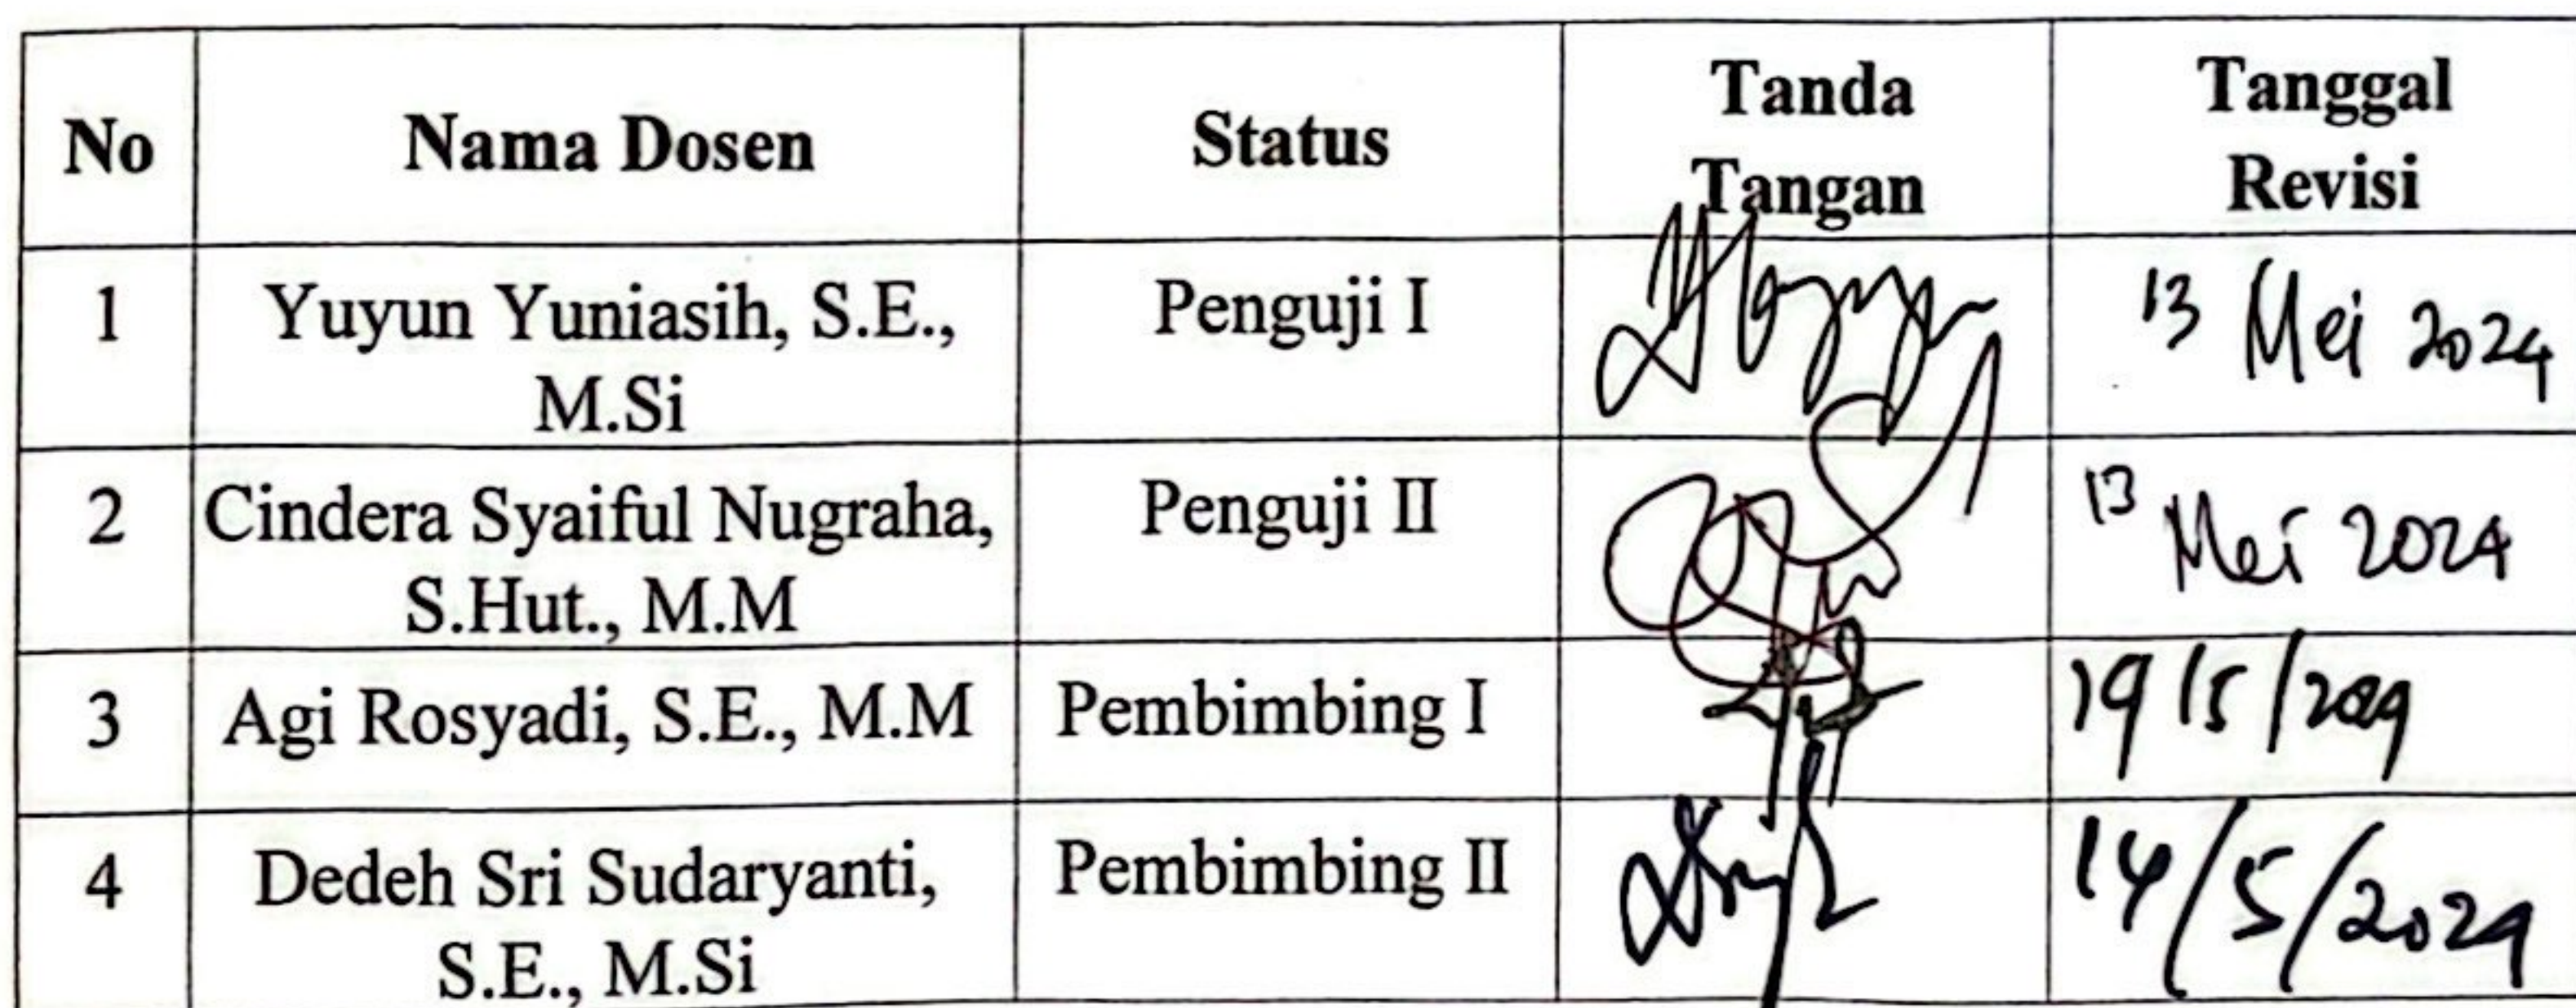 No Nama Dosen Status Tanda Tangan Tanggal Revisi
1 Yuyun Yuniasih, S.E., Penguji I 13 Mei 2024
M.Si
2 Cindera Syaiful Nugraha, Penguji II 13 Mei 2024
S.Hut., M.M
3 Agi Rosyadi, S.E., M.M Pembimbing I
4 Dedeh Sri Sudaryanti, Pembimbing II 14/5/2024
S.E., M.Si